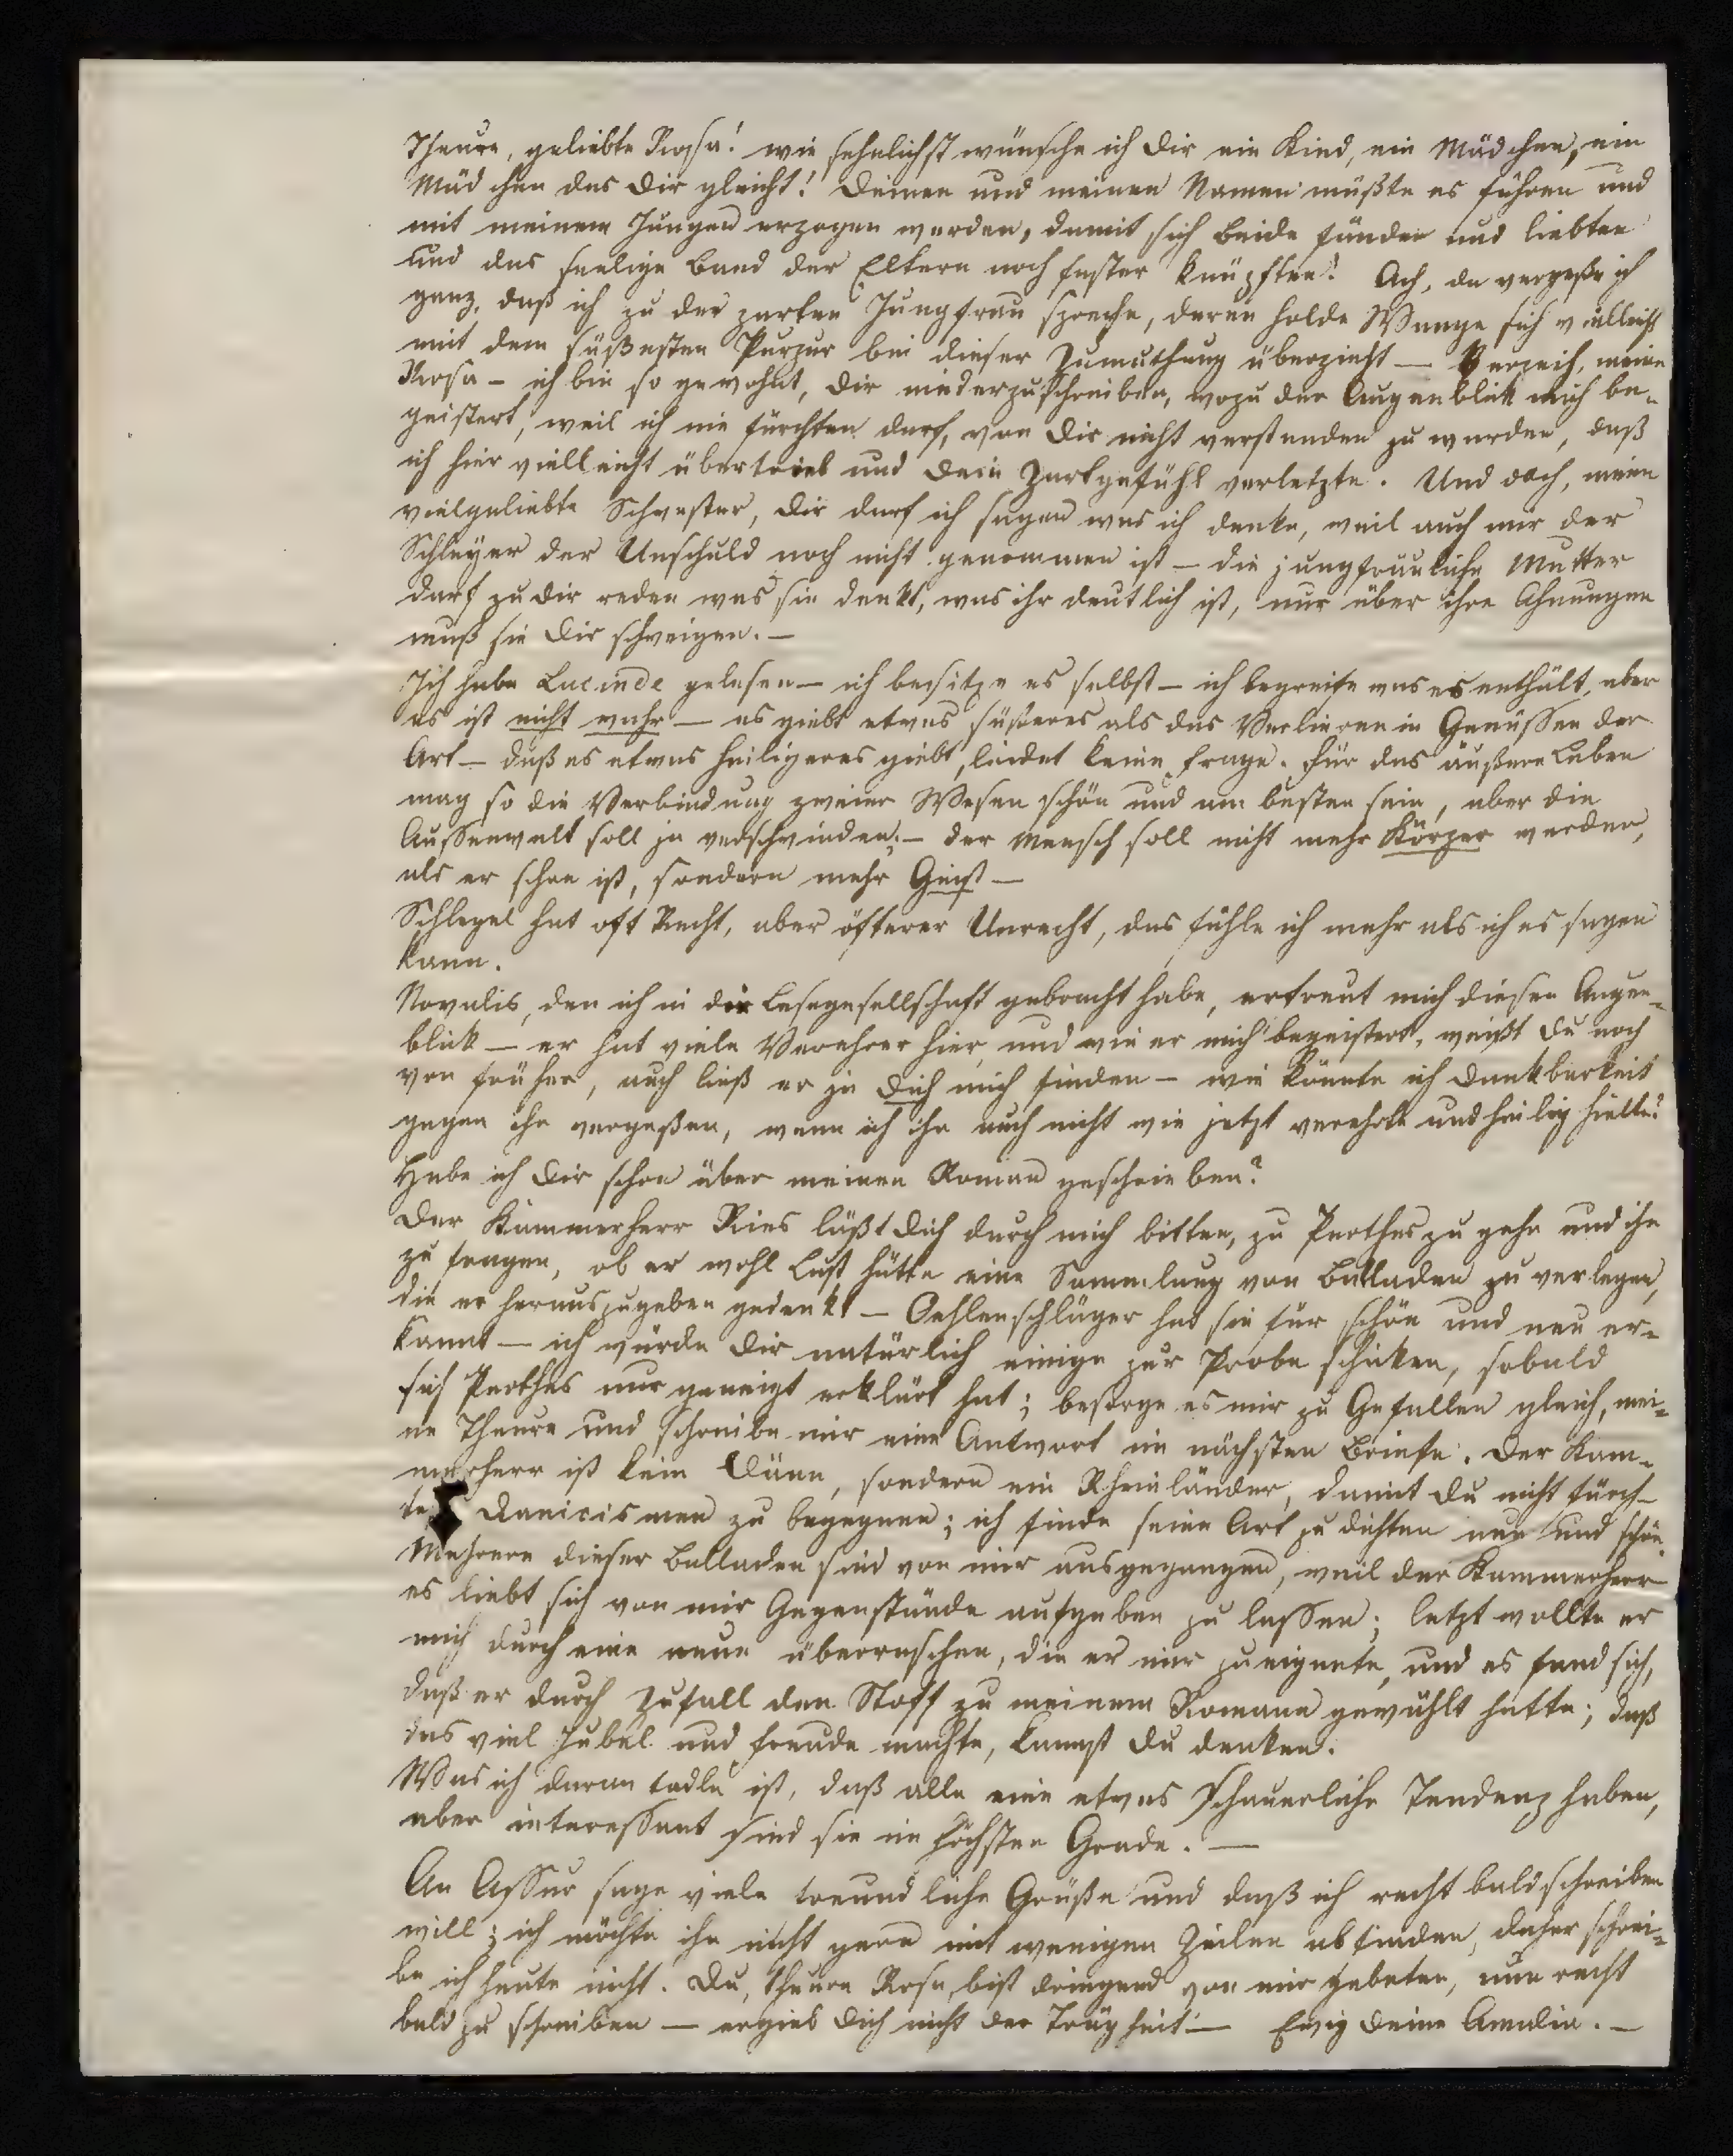 Theure, geliebte Rosa! wie sehnlichst wünsche ich Dir ein Kind, ein Mädchen, ein
Mädchen das Dir gleicht! Deinen und meinen Namen müßte es führen und
mit meinem Jungen erzogen werden, damit sich beide fänden und liebten
und das seelige Band der Eltern noch fester knüpften! Ach, da vergeße ich
ganz, daß ich zu der zarten Jungfrau spreche, deren holde Wange sich vielleicht
mit dem süßesten Purpur bei dieser Zumuthung überzieht — Verzeih, meine
Rosa — ich bin so gewohnt, Dir niederzuschreiben, wozu der Augenblick mich be-
geistert, weil ich nie fürchten darf, von Dir nicht verstanden zu werden, daß
ich hier vielleicht übertrieb und Dein Zartgefühl verletzte. Und doch, meine
vielgeliebte Schwester, Dir darf ich sagen was ich denke, weil auch mir der
Schleyer der Unschuld noch nicht genommen ist — die jungfräuliche Mutter
darf zu Dir reden was sie denkt, was ihr deutlich ist, nur über ihre Ahnungen
muß sie Dir schweigen. —
Ich habe Lucinde gelesen — ich besitze es selbst — ich begreife was es enthält, aber
es ist nicht wahr — es giebt etwas süßeres als das Verlieren in Genüssen der
Art — daß es etwas heiligeres giebt, leidet keine Frage. Für das äußere Leben
mag so die Verbindung zweier Wesen schön und am besten sein, aber die
Aussenwelt soll ja verschwinden; — der Mensch soll nicht mehr Körper werden,
als er schon ist, sondern mehr Geist —
Schlegel hat oft Recht, aber öfterer Unrecht, das fühle ich mehr als ich es sagen
kann.
Novalis, den ich in die Lesegesellschaft gebracht habe, erfreut mich diesen Augen-
blick — er hat viele Verehrer hier, und wie er mich begeistert, weißt Du noch
von früher, auch ließ er ja Dich mich finden — wie könnte ich Dankbarkeit
gegen ihn vergeßen, wenn ich ihn auch nicht wie jetzt verehrte und heilig hielte?
Habe ich Dir schon über meinen Roman geschrieben?
Der Kammerherr Ries läßt Dich durch mich bitten, zu Perthes zu gehn und ihn
zu fragen, ob er wohl Lust hätte eine Sammlung von Balladen zu verlegen,
die er herauszugeben gedenkt — Oehlenschläger hat sie für schön und neu er-
kannt — ich würde Dir natürlich einige zur Probe schicken, sobald
sich Perthes nur geneigt erklärt hat; besorge es mir zu Gefallen gleich, mei-
ne Theure und schreibe mir eine Antwort im nächsten Briefe. Der Kam-
merherr ist kein Däne, sondern ein Rheinländer, damit Du nicht fürch-
test Danicismen zu begegnen; ich finde seine Art zu dichten neu und schön.
Mehrere dieser Balladen sind von mir ausgegangen, weil der Kammerherr
es liebt sich von mir Gegenstände aufgeben zu lassen; letzt wollte er
mich durch eine neue überraschen, die er mir zueignete, und es fand sich,
daß er durch Zufall den Stoff zu meinem Romane gewählt hatte; daß
das viel Jubel und Freude machte, kannst Du denken.
Was ich daran tadle ist, daß alle eine etwas schauerliche Tendenz haben,
aber interessant sind sie im höchsten Grade. —
An Assur sage viele freundliche Grüße und daß ich recht bald schreiben
will; ich möchte ihn nicht gern mit wenigen Zeilen abfinden, daher schrei-
be ich heute nicht. Du, theure Rosa, bist dringend von mir gebeten, nun recht
bald zu schreiben — ergieb Dich nicht der Trägheit — Ewig Deine Amalia. —